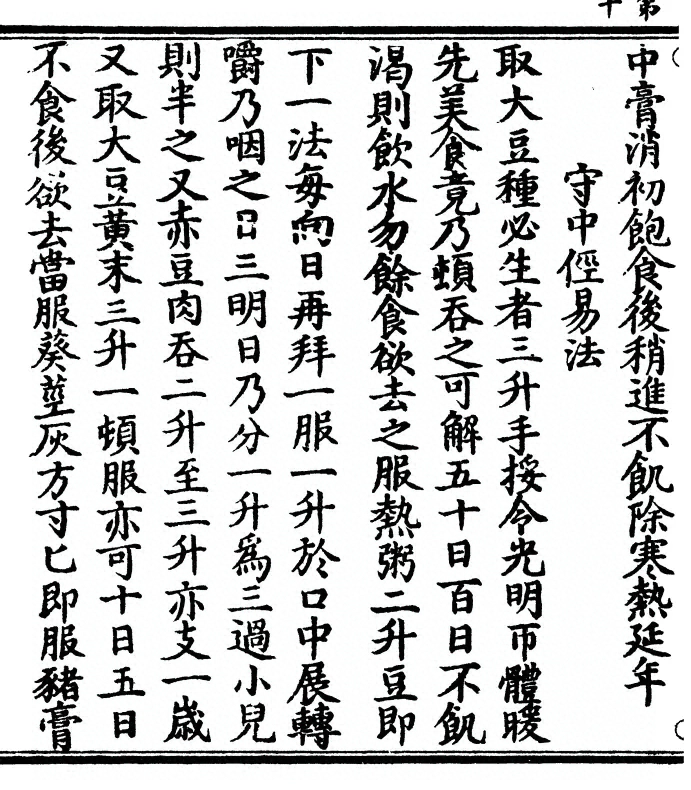 第十
中膏消初飽食後稍進不飢除寒熱延年
守中徑易法
取大豆種必生者三升手挼令光明帀體暖
先美食竟乃頓吞之可解五十日百日不飢
渴則飲水勿餘食欲去之服熱粥二升豆即
下一法每向日再拜一服一升於口中展轉
嚼乃咽之日三明日乃分一升爲三過小兒
則半之又赤豆肉吞二升至三升亦支一歲
又取大豆黃末三升一頓服亦可十日五日
不食後欲去當服葵莖灰方寸匕即服豬膏